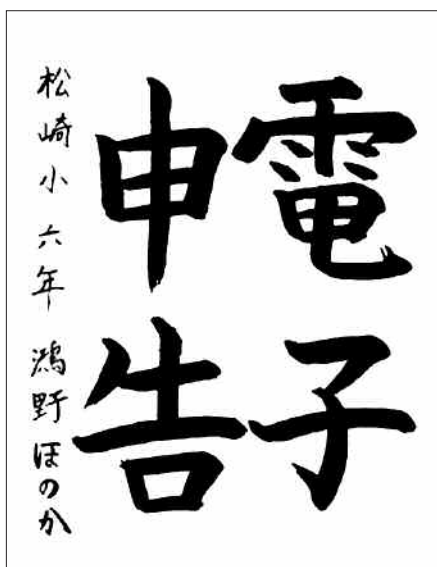 電子
申告
松崎小 六年 鴻野ほのか